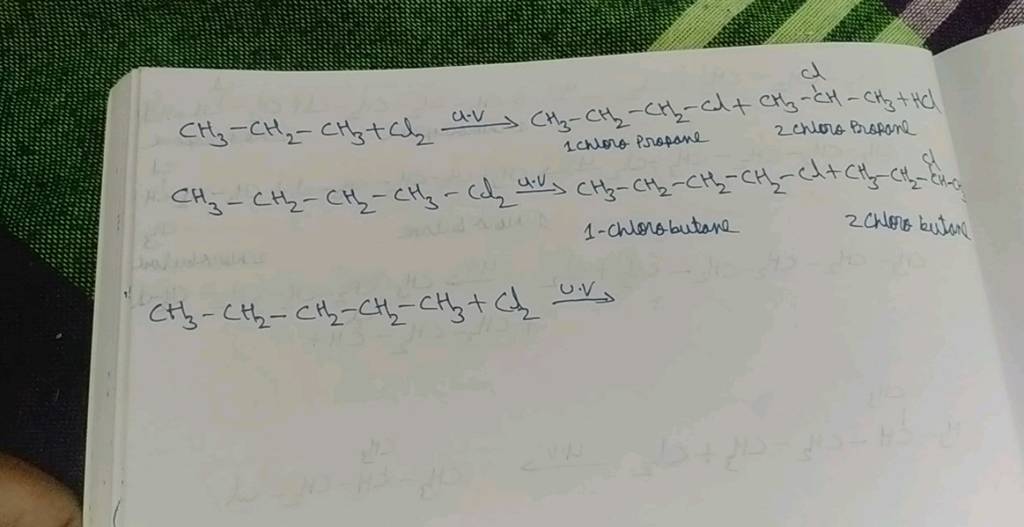 Cl
CH₃-CH₂-CH₃+Cl₂ U.V → CH₃-CH₂-CH₂-Cl+CH₃-CH-CH₃+HCl
1Chloro Propane 2 Chloro Propane
Cl
CH₃-CH₂-CH₂-CH₃-Cl₂ U.V → CH₃-CH₂-CH₂-CH₂-Cl+CH₃-CH₂-CH-C
1-Chlorobutane 2 Chloro butane
CH₃-CH₂-CH₂-CH₂-CH₃+Cl₂ U.V →